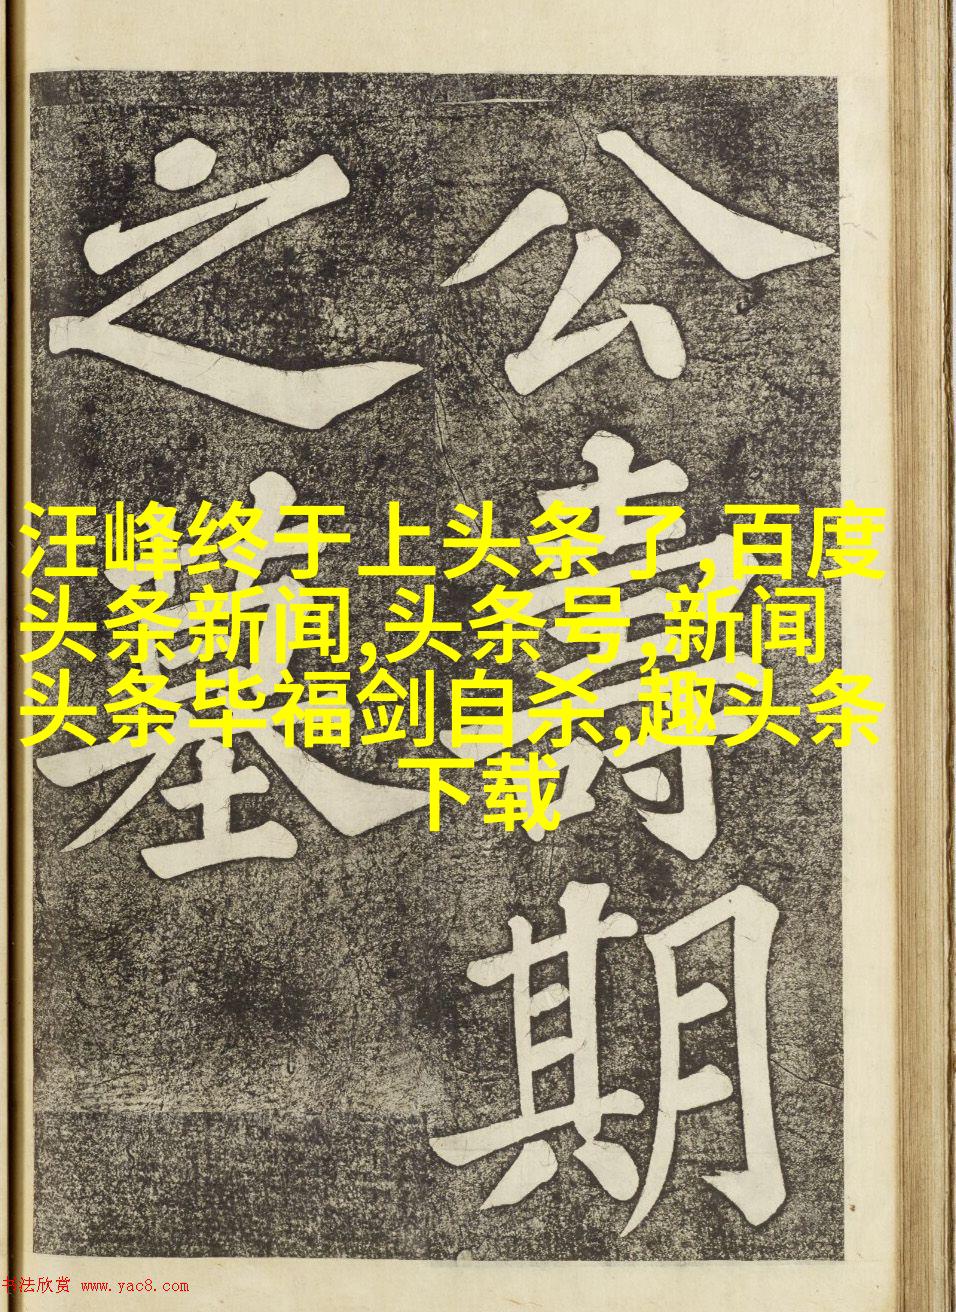 公壽期
之墓
汪峰终于上头条了,百度
头条新闻,头条号,新闻
头条毕福剑自杀,趣头条
下载
书法欣赏 www.yac8.com